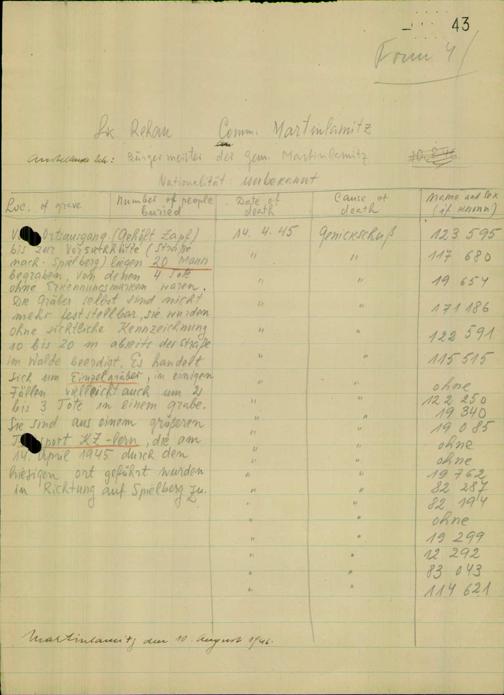 43
Form 4
Lk Rehau Comm. Martinlamitz
Bürgermeister der Gem. Martinlamitz
Nationalität: unbekannt
Loc. of grave
Number of people buried
Date of death
Cause of death
Name and Sex (if known)
Ortsausgang (Gehöft Zapf)
bis zur Vorsuchhütte (Straße
nach Spielberg) liegen 20 Mann
begraben, von denen 4 Tote
ohne Erkennungsmarken waren.
Die Gräber selbst sind nicht
mehr feststellbar, sie wurden
ohne sichtliche Kennzeichnung
10 bis 20 m abseits der Straße
im Walde beerdigt. Es handelt
sich um Einzelgräber, in einigen
Fällen vielleicht auch um 2
bis 3 Tote in einem Grabe.
Sie sind aus einem größeren
KZ-lern, die am
14. April 1945 durch den
hiesigen Ort geführt wurden
in Richtung auf Spielberg zu.
14. 4. 45 Genickschuß 123 595
" " 117 680
" " 19 654
" " 171 186
" " 122 591
" " 115 515
" " ohne
" " 122 250
" " 19 340
" " 19 085
" " ohne
" " ohne
" " 19 762
" " 82 287
" " 82 194
" " ohne
" " 19 299
" " 12 292
" " 83 043
" " 114 621
Martinlamitz den 10. August 1946.